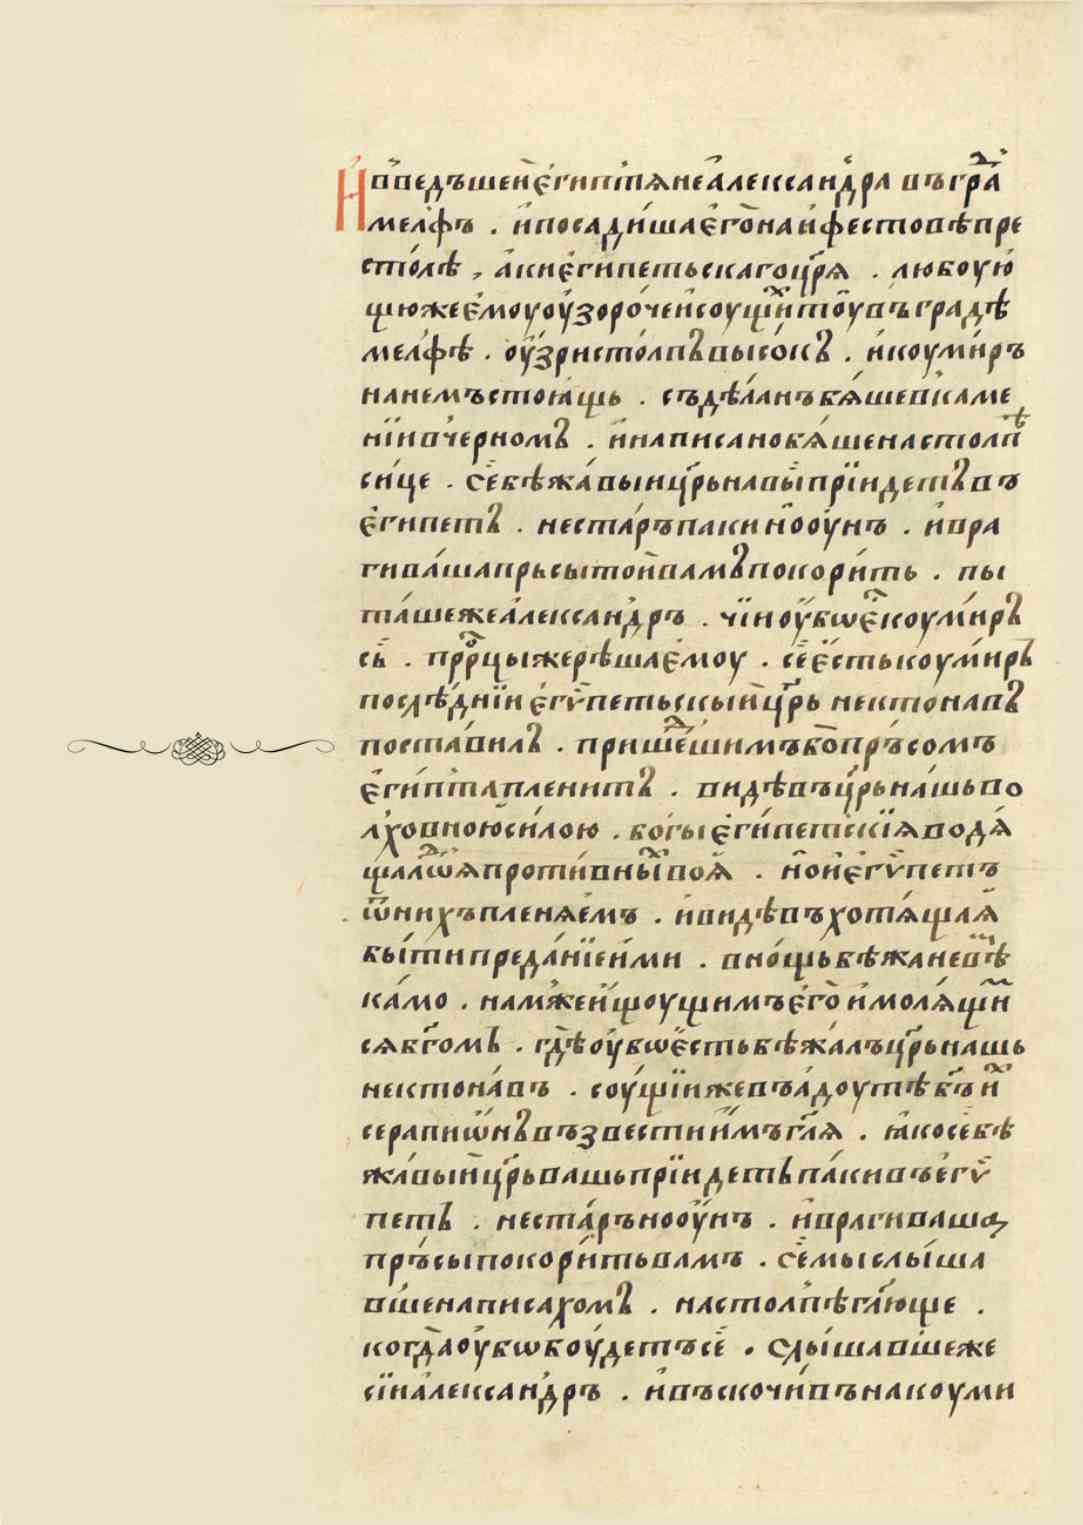 И введъшен египтяне александра въ гра
мелфъ . и посадиша его на ифестовѣ пре
столѣ , аки египетьскаго цр҃я . любоую
щю же емоу оузорочеи соущи^х тоу въ градѣ
мелфѣ . оузри столпъ высокъ . и коумиръ
на немъ стоящь . съдѣланъ бяше в камe
нїи в черномъ . и написано бяше на столпѣ
сице . се бѣжавыи цр҃ь на вы прїидетъ въ
египетъ . не старъ паки но оунъ . и вра
ги ваша прьсы тои вамъ покорить . пы
таше же александръ . чїи оубѡ е^с коумиръ
сь . пррⷪ҇цы же рѣша емоу . се есть коумиръ
послѣднїи егѵпетьскыи цр҃ь нектонавъ
поставилъ . пришешⷣимъ бо пръсомъ
египта пленитъ . видѣвъ цр҃ь нашь во
лховною силою . богы египетскїя водя
ща а ѿⷣ҇я противныⷯ воя . но и егѵпетъ
ѿ нихъ пленяемъ . и видѣвъ хотящая
быти преданїе ими . в нощь бѣжа невⷭ҇ѣ
камо . нам же ищоущимъ его и молящи
ся бг҃омъ . гдѣ оубѡ есть бѣжалъ цр҃ь нашь
нектонавъ . соущїи же въ адоу тѣ бг҃ъ иⷯ
серапиѡнъ възвести имъ гл҃я . яко се бѣ
жавыи цр҃ь вашь прїидетъ паки въ егѵ
петъ . не старъ но оунъ . и враги ваша
пръсы покорить вамъ . се мы слыша
вше написахомъ . на столпѣ гл҃юще .
когда оубѡ боудетъ се . Слышавше же
сїи александръ . и въскочивъ на коуми